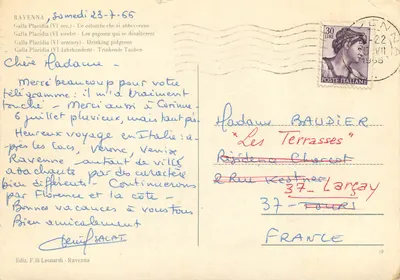 RAVENNA, Samedi 23-7-66
Galla Placidia (VI sec.) - Un colatoio che si abbeverano
Galla Placidia (VI siècle) - Les pigeons qui se désaltèrent
Galla Placidia (VI century) - Drinking pidgeons
Galla Placidia (VI. Jahrhundert) - Trinkende Tauben
Chère Madame -
Merci beaucoup pour votre
télégramme : il m'a vraiment
touché - Merci aussi à Corinne -
juillet pluvieux, mais tant pis
Heureux voyage en Italie : a-
près les lacs, Verone, Venise
Ravenne autant de villes
attachantes par des caractères
bien différents - Continuerons
par Florence et la côte -
Bonnes vacances à vous tous
Bien amicalement
Ediz. F.lli Lonardi - Ravenna
30
POSTE ITALIANE
22
1966
Madame BAUDIER
"Les Terrasses"
Résidence Charcot
2 Rue Kestner
37- Larçay
37- TOURS
FRANCE